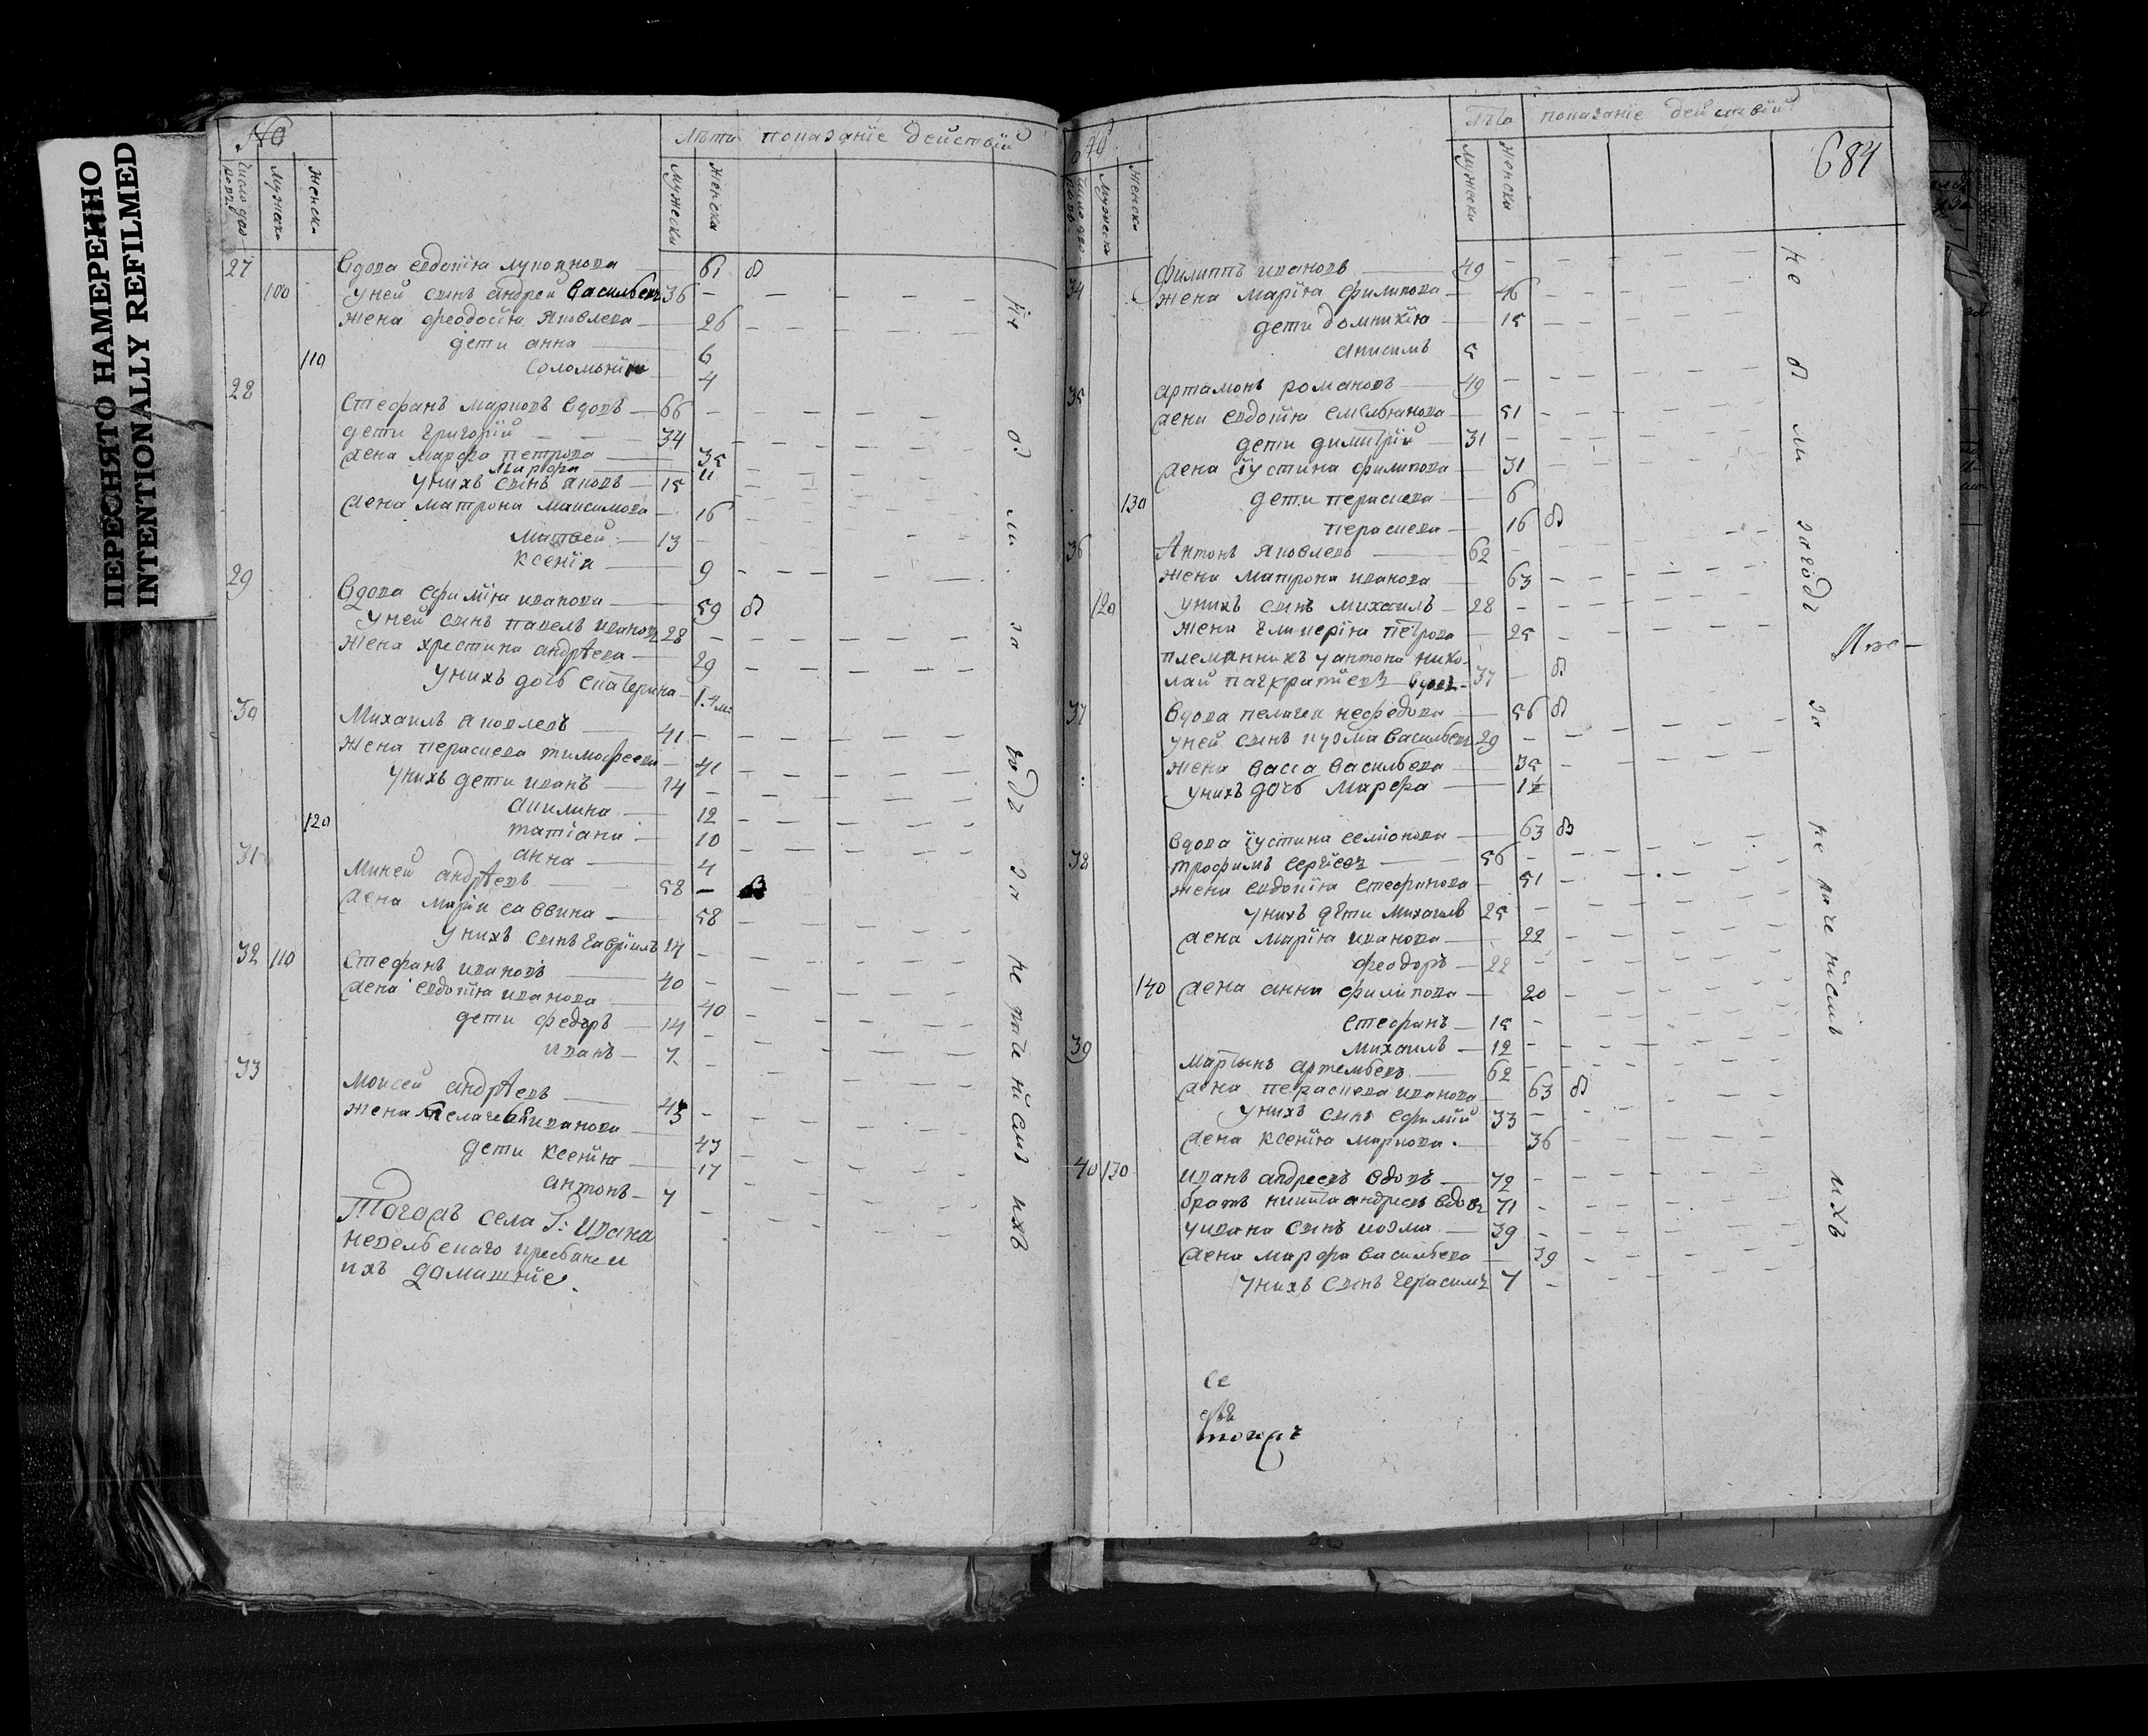 ПЕРЕСНЯТО НАМЕРЕННО
INTENTIONALLY REFILMED
№
Лѣта показанїе действїй
Число дво
Мужеска
Женска
Мужеска
Женска
27 вдова евдокїя лукоянова — 61 в
100 у ней сынъ андрей васильевъ 36 —
жена феодосїя яковлева — 26 —
дети анна — 6
110 соломонїя — 4
28
Стефанъ марковъ вдовъ — 66 —
дети григорїй — 34
жена марфа петрова — 35
марфа — 11
у нихъ сынъ яковъ — 15
жена матрона максимова — 16
матвей — 13
ксенїя — 9
29
вдова ефимїя иванова — 59 в
у ней сынъ павелъ ивановъ 28 —
жена христина андрѣева — 29
у нихъ дочь екатерина — 1.4 м:
30
Михаилъ яковлевъ — 41 —
жена параскева тимофеева — 41
у нихъ дети иванъ — 14 —
акилина — 12
120 татїана — 10
анна — 4
31
Михей андрѣевъ — 58 —
жена марїя саввина — 58
у нихъ сынъ гаврїилъ 14 —
32 110
Стефанъ ивановъ — 40 —
жена евдокїя иванова — 40
дети федоръ — 14
иванъ — 7
33
Моисей андрѣевъ — 43 —
жена пелагея иванова — 43
дети ксенїя — 17
антонъ — 7
Тогожъ села Г: Ивана
ихъ домашнїе.
не б ли за годъ за не раченїемъ ихъ
№
Лѣта показанїе действїй
684
Мужеска
Женска
Мужеска
Женска
34
филиппъ ивановъ — 49 —
жена марїя филипова — 46
дети домникїя — 15
анисимъ 5
35
артамонъ романовъ — 49 —
жена евдокїя емельянова — 51
дети димитрїй — 31
жена їустина филипова — 31
130 дети параскева — 6
параскева — 16 в
36
Антонъ яковлевъ — 62 —
жена матрона иванова — 63
120 у нихъ сынъ михаилъ — 28 —
жена гликерїя петрова — 25
племянникъ у антона нико-
лай панкратїевъ вдовъ — 37 — в
37
вдова пелагея нефедова — 56 в
у ней сынъ кузма васильевъ 29 —
жена васса васильева — 35
у нихъ дочь марфа — 1½
вдова їустина семїонова — 63 в
38
трофимъ сергїевъ — 56 —
жена евдокїя стефанова — 51
у нихъ дѣти михаилъ 25 —
жена марїя иванова — 22
феодоръ — 22 —
140 жена анна филипова — 20
стефанъ — 15 —
39
михаилъ — 12 —
мартынъ артемьевъ — 62
жена параскева иванова — 63 в
у нихъ сынъ ефимїй 33 —
жена ксенїя маркова — 36
40 130
иванъ андреевъ вдовъ — 72 —
братъ никита андреевъ вдовъ 71 —
у ивана сынъ козма — 39 —
жена марфа васильева — 39
у нихъ сынъ герасимъ 7 —
не б ли за годъ за не раченїемъ ихъ
се
тогожъ